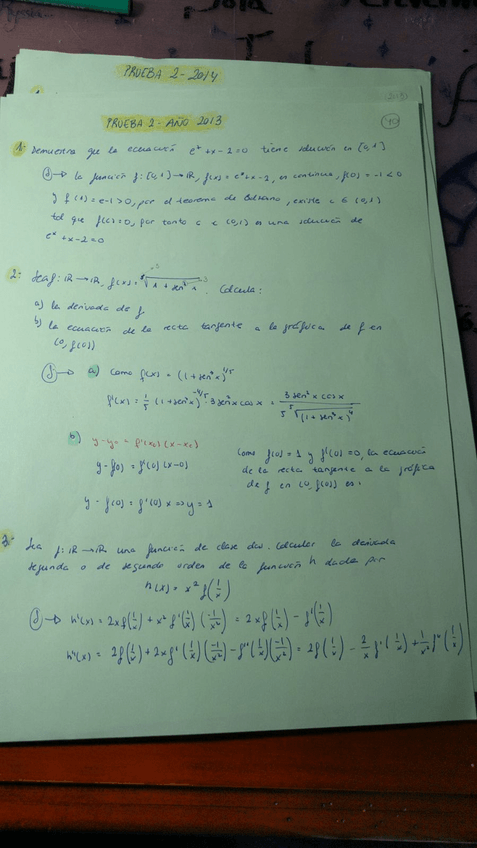 PRUEBA 2 - 2014
PRUEBA 2 - AÑO 2013
1. Demuestra que la ecuación e^x + x - 2 = 0 tiene solución en [0,1]
La función f: [0,1] → IR, f(x) = e^x + x - 2, es continua, f(0) = -1 < 0
y f(1) = e - 1 > 0, por el teorema de Bolzano, existe c ∈ (0,1)
tal que f(c) = 0, por tanto c ∈ (0,1) es una solución de
e^x + x - 2 = 0
2. Sea f: IR → IR, f(x) = . Calcula:
a) la derivada de f
b) la ecuación de la recta tangente a la gráfica de f en
(0, f(0))
a) Como f(x) = (1 + sen^3 x)^{1/5}
f'(x) = 1/5 (1 + sen^3 x)^{-4/5} · 3 sen^2 x cos x = 3 sen^2 x cos x / 5 ⁵√(1 + sen^3 x)^4
b) y - y₀ = f'(x₀) (x - x₀)
y - f(0) = f'(0) (x - 0)
y - f(0) = f'(0) x ⇒ y = 1
Como f(0) = 1 y f'(0) = 0, la ecuación
de la recta tangente a la gráfica
de f en (0, f(0)) es:
3. Sea f: IR → IR una función de clase dos. Calcular la derivada
segunda o de segundo orden de la función h dada por
h(x) = x² f(1/x)
h'(x) = 2x f(1/x) + x² f'(1/x) (-1/x²) = 2x f(1/x) - f'(1/x)
h''(x) = 2f(1/x) + 2x f'(1/x) (-1/x²) - f''(1/x) (-1/x²) = 2f(1/x) - 2/x f'(1/x) + 1/x² f''(1/x)